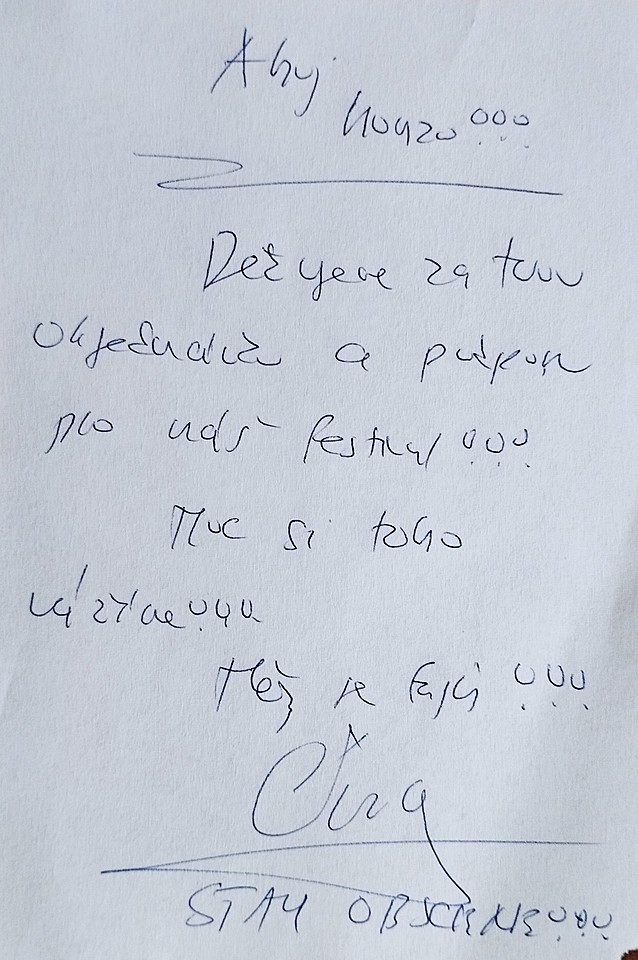 Ahoj
Honzo!!!
Děkujeme za tvou
objednávku a podporu
pro náš festival!!!
Moc si toho
vážíme!!!
Měj se fajn!!!
Čurq
STAY OBSCENE!!!